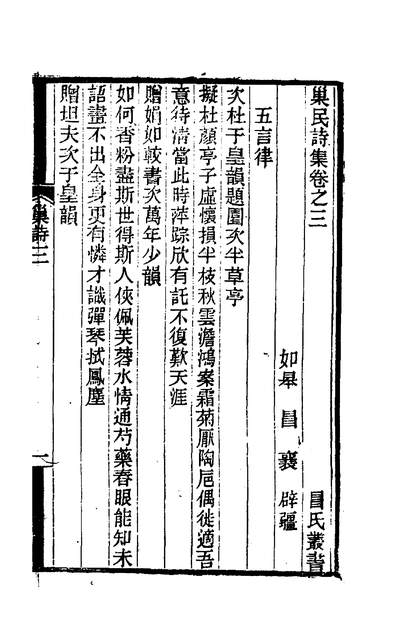 巢民詩集卷之三　冒氏叢書
如皋　冒　襄　辟疆
五言律
次杜于皇韻題園次半草亭
擬杜顏亭子虛懷損半枝秋雲澹鴻案霜菊厭陶巵偶徙適吾
意待淸當此時萍踪欣有託不復歎天涯
贈娟如較書次萬年少韻
如何香粉盡斯世得斯人俠佩芙蓉水情通芍藥春眼能知未
語盡不出全身更有憐才識彈琴拭鳳塵
贈坦夫次于皇韻
巢詩三　一